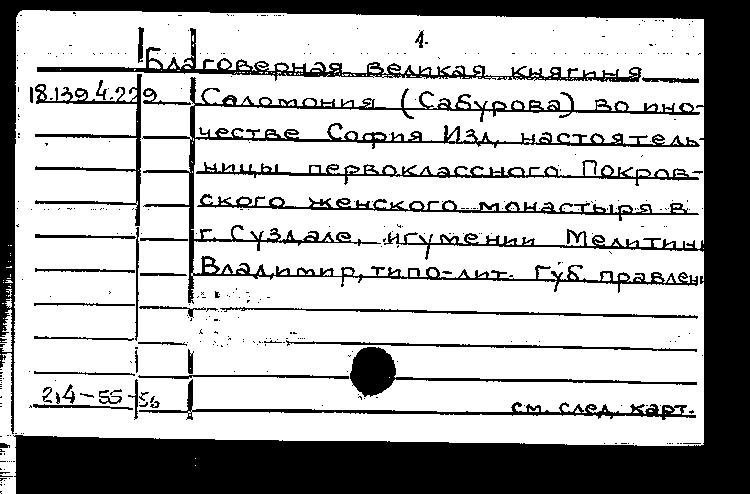 1.
Благоверная великая княгиня
18.139.4.229. Саломония (Сабурова) во ино-
честве София Изд. настоятель-
ницы первоклассного Покров-
ского женского монастыря в
г. Суздале, игумении Мелитины
Владимир, типо-лит. Губ. правлени
2,4-55-56 см. след. карт.